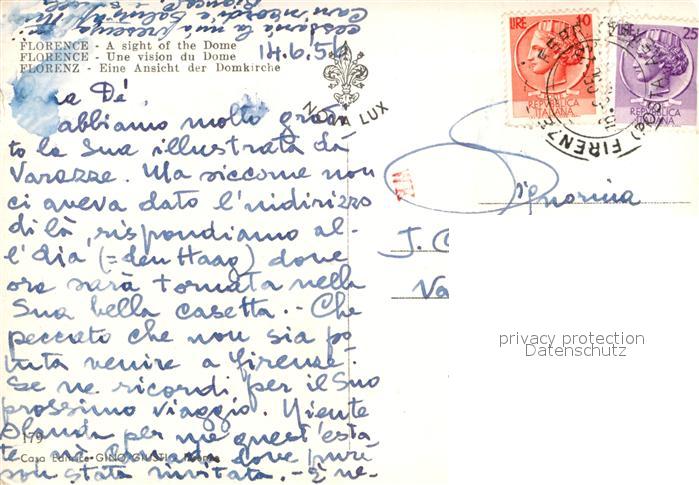 cessaria la mia presenza
Cari ricordi e saluti
Bianca
FLORENCE - A sight of the Dome
FLORENCE - Une vision du Dome
FLORENZ - Eine Ansicht der Domkirche
14.6.56
NOVA LUX
Cara Dé,
abbiamo molto gradi
to la Sua illustrata da
Varazze. Ma siccome non
ci aveva dato l'indirizzo
di là, rispondiamo al-
l'Aia (= den Haag) dove
ora sarà tornata nella
Sua bella casetta. - Che
peccato che non sia po
tuta venire a Firenze.
Se ne ricordi per il Suo
prossimo viaggio. Niente
Olanda per me quest'esta
te nè dove pure
son stata invitata. - È ne-
179
Casa Editrice GINO GIUSTI - Firenze
LIRE 10
REPVBBLICA
ITALIANA
LIRE 25
REPVBBLICA
ITALIANA
FIRENZE
Signorina
J. C
Va
privacy protection
Datenschutz